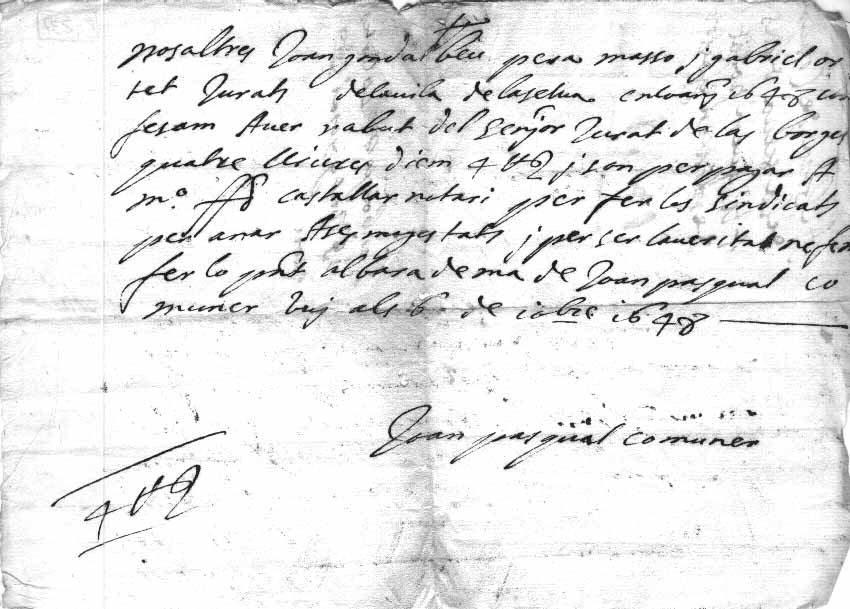 nosaltres Joan pera masso j gabriel or
tet Jurats dela vila dela selva en lo anÿ 1648 con
fesam Auer rabut del senÿor Jurat de las borges
quatre lliures diem 4 ll j son per pagar A
m.º castallar notari per fer los sindicats
per anar A ses magestats j per ser la veritat ne fem
fer lo pñt albara de ma de Joan pasqual co
muner vuj als 6 de 1648
Joan pasqual comuner
4 ll